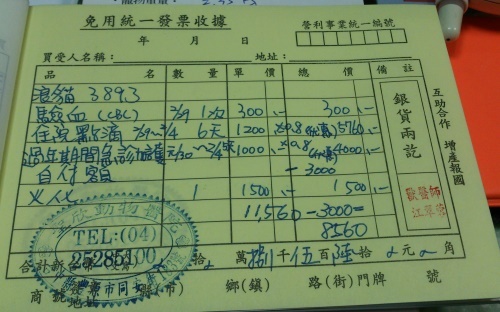 免用統一發票收據
營利事業統一編號
年 月 日
買受人名稱： 地址：
品 名 數量 單價 總價 備註
浪貓 3893
驗血 (CBC) 2/9 1次 300.- 300.-
住院點滴 2/9~2/4 6天 1200 ×0.8 5760.-
過年期間急診 1000 ×0.8 4000.-
自付額 -3000
火化 1 1500.- 1500.-
11,560 - 3000 =
8560
銀貨兩訖
獸醫師
互助合作 增產報國
動物醫院
TEL:(04)
25285100
合計新台幣 拾 萬 捌 千 伍 百 陸 拾 元 角
商號 地址 縣(市) 鄉(鎮) 路(街)門牌 號